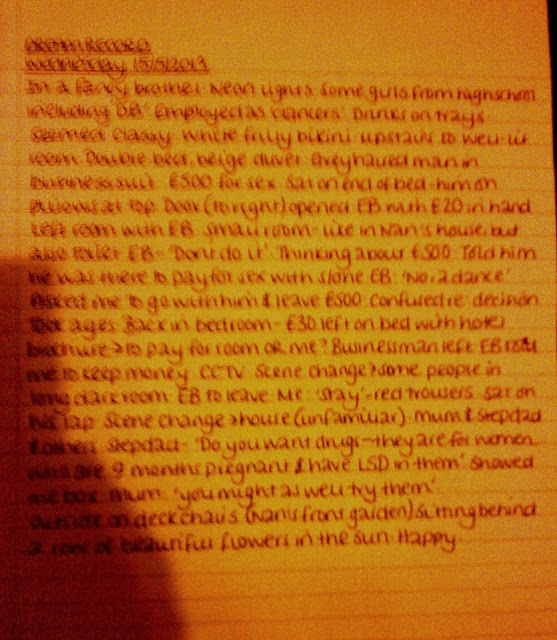 DREAM RECORD
Wednesday 15/5/2013
In a fancy brothel. Neon lights. Some girls from highschool
including DB. 'Employed as dancers'. Drinks on trays
seemed classy. White frilly bikini. upstairs to well-lit
room. Double bed, beige duvet. Greyhaired man in
business suit. £500 for sex. Sat on end of bed-him on
pillows at top. Door (to right) opened. EB with £20 in hand
Left room with EB. small room-like in Nan's house, but
also toilet. EB- 'Don't do it'. Thinking about £500. Told him
he was there to pay for sex with EB: 'No, a dance'
Asked me to go with him & leave £500. Confused re: decision
Took ages. Back in bedroom- £30 left on bed with hotel
brochure > to pay for room OR me? Businessman left. EB told
me to keep money. CCTV. Scene change > some people in
long dark room. EB to leave. Me: 'Stay'-red trousers. Sat on
his lap. Scene change > house (unfamiliar). mum & stepdad
& others. Stepdad- 'Do you want drugs-they are for women
who are 9 months pregnant & have LSD in them'. Showed
me box. Mum: 'you might as well try them'.
Outside on deckchairs (Nan's front garden) sitting behind
a row of beautiful flowers in the sun. Happy.